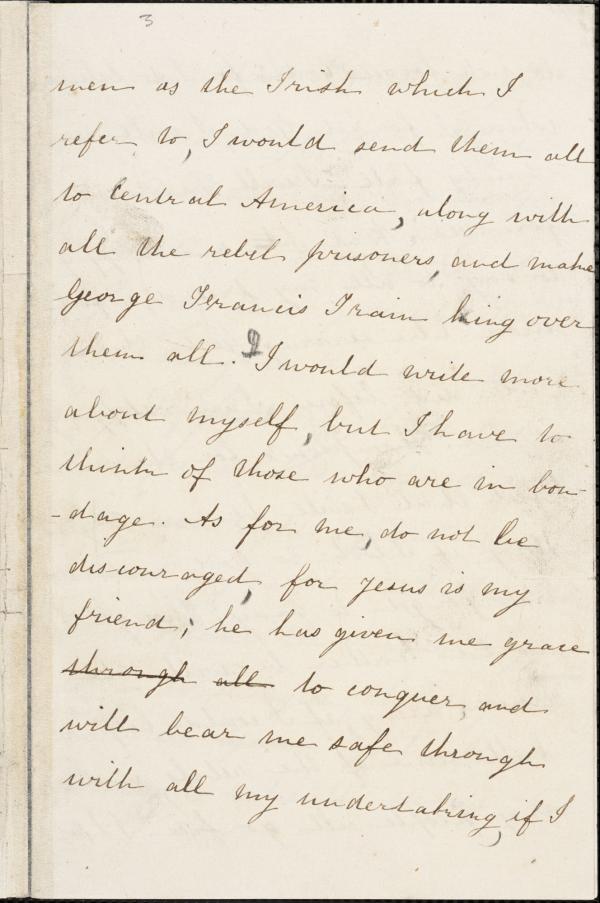 3
men as the Irish which I
refer to, I would send them all
to Central America, along with
all the rebel prisoners, and make
George Francis Train king over
them all. I would write more
about myself, but I have to
think of those who are in bon-
-dage. As for me, do not be
discouraged, for Jesus is my
friend; he has given me grace
through all to conquer, and
will bear me safe through
with all my undertaking, if I